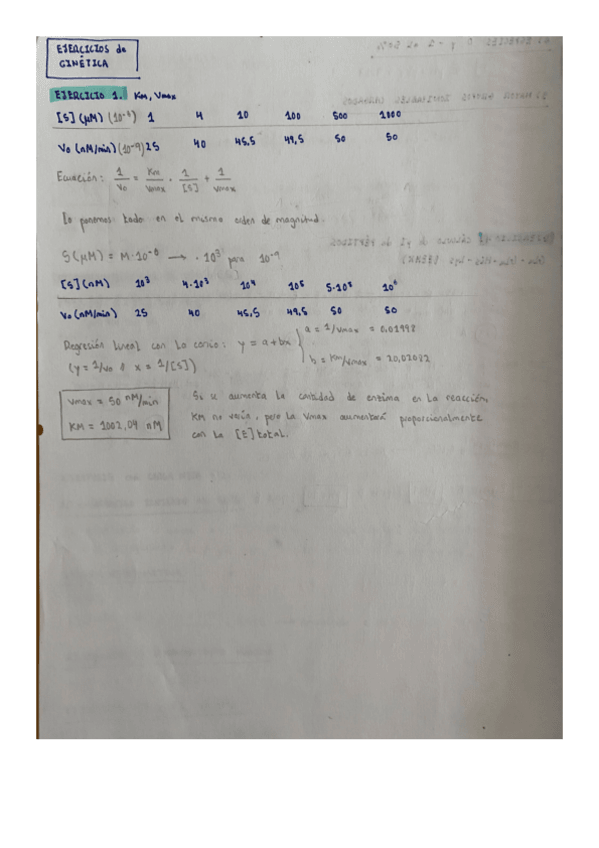 EJERCICIOS de
CINÉTICA
EJERCICIO 1. Km, Vmax
[S](μM) (10⁻⁶) 1 4 10 100 500 1000
Vo (nM/min)(10⁻⁹) 25 40 45,5 49,5 50 50
Ecuación: 1/Vo = Km/Vmax · 1/[S] + 1/Vmax
Lo ponemos todo en el mismo orden de magnitud.
S(μM) = M·10⁻⁶ → ·10³ para 10⁻⁹
[S](nM) 10³ 4·10³ 10⁴ 10⁵ 5·10⁵ 10⁶
Vo(nM/min) 25 40 45,5 49,5 50 50
Regresión lineal con la casio: y = a+bx a = 1/Vmax = 0,01998
(y = 1/Vo y x = 1/[S]) b = Km/Vmax = 20,02082
Vmax = 50 nM/min
KM = 1002,04 nM
Si se aumenta la cantidad de enzima en la reacción,
KM no varía, pero la Vmax aumentará proporcionalmente
con la [E]total.